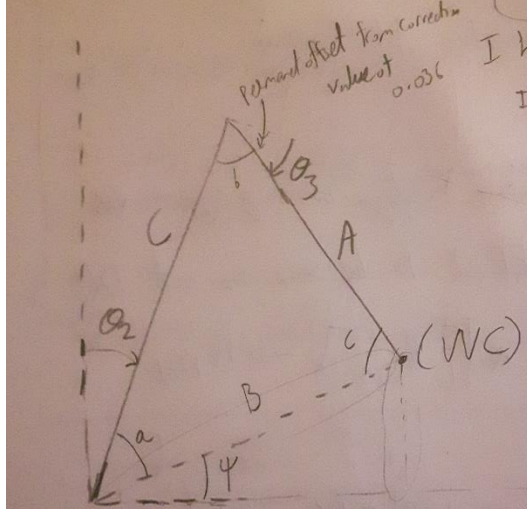 offset from correction
value of
0.036
I
I
b
θ3
C
A
θ2
c
(WC)
B
a
Ψ